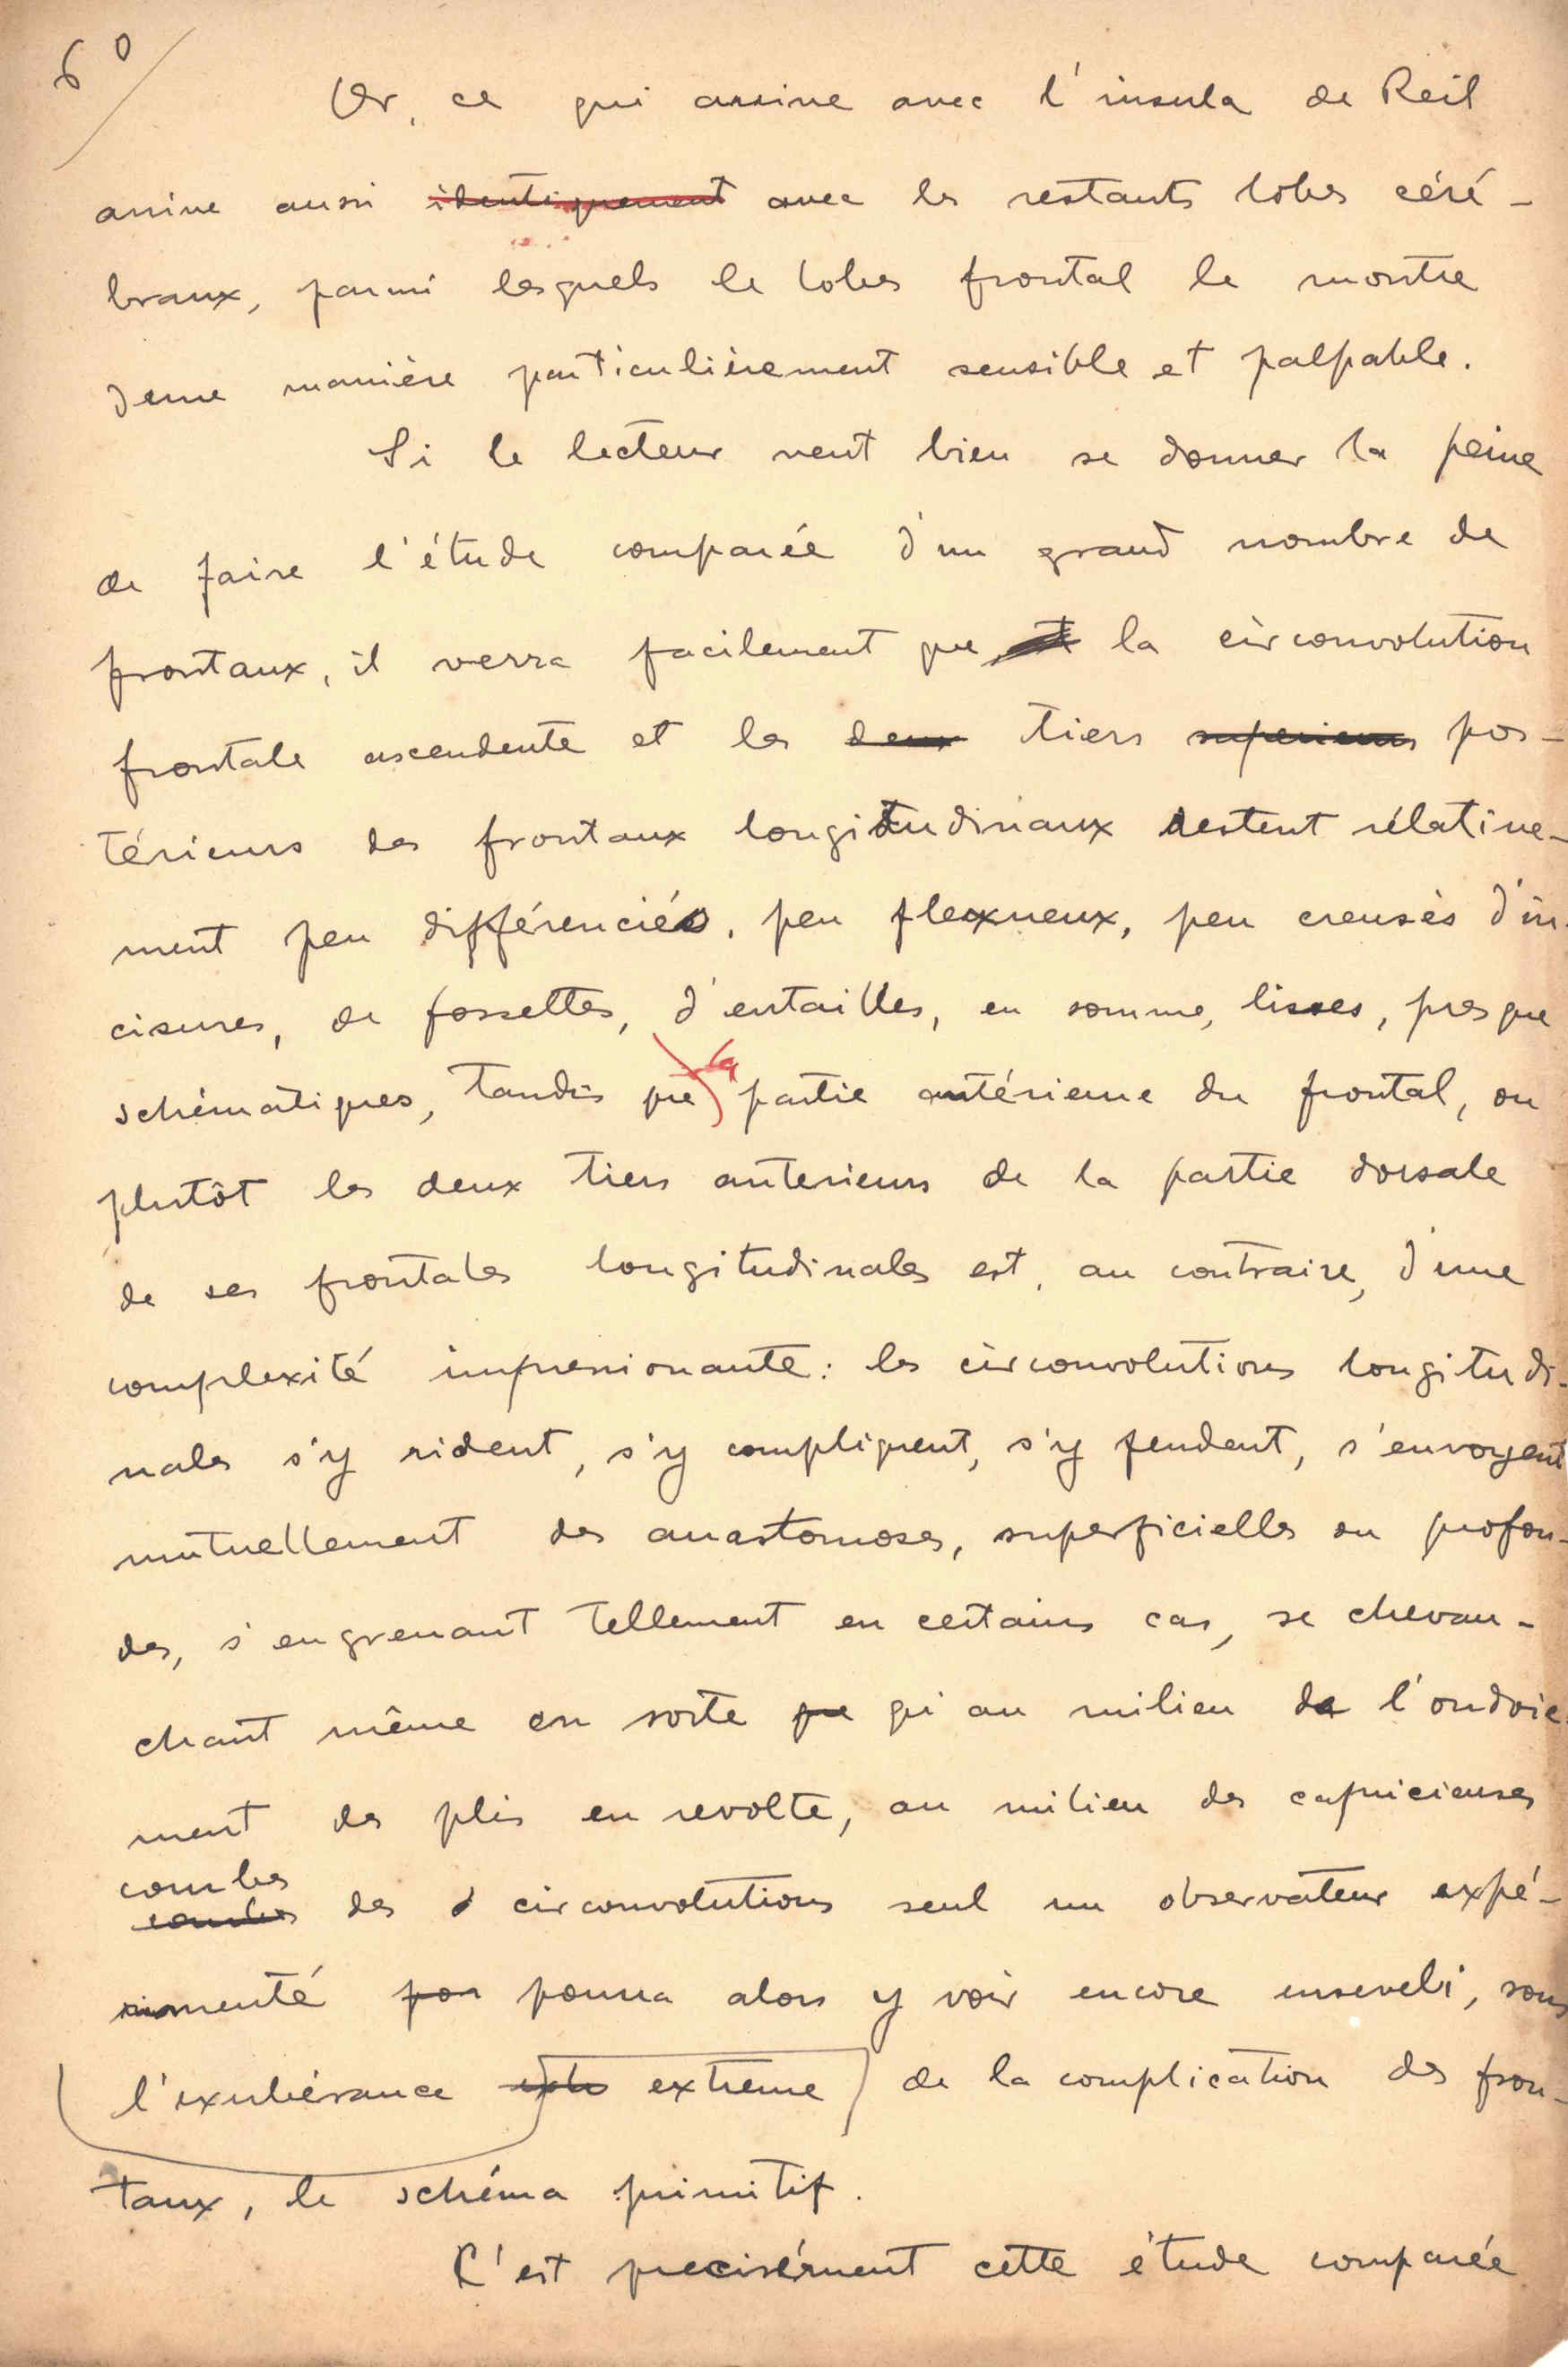 6º
Or, ce qui arrive avec l'insula de Reil
arrive aussi identiquement avec les restants lobes céré-
braux, parmi lesquels le lobes frontal le montre
d'une manière particulièrement sensible et palpable.
Si le lecteur veut bien se donner la peine
de faire l'étude comparée d'un grand nombre de
frontaux, il verra facilement que la circonvolution
frontale ascendente et les deux tiers superieurs pos-
térieurs des frontaux longitudinaux restent rélative-
ment peu différenciés, peu flexueux, peu creusés d'in-
cisures, de fossettes, d'entailles, en somme, lisses, presque
schèmatiques, tandis que la partie antérieure du frontal, ou
plutôt les deux tiers anterieurs de la partie dorsale
de ses frontales longitudinales est, au contraire, d'une
complexité impressionante: les circonvolutions longitudi-
nales s'y rident, s'y compliquent, s'y fendent, s'envoyent
mutuellement des anastomoses, superficielles ou profon-
des, s'engrenant tellement en certains cas, se chevau-
chant même en sorte que qu'au milieu de l'ondoie-
ment des plis en revolte, au milieu des capricieuses
courbes
des circonvolutions seul un observateur expé-
rimenté pourra alors y voir encore enseveli, sous
l'exubérance extreme de la complication des fron-
taux, le schéma primitif.
C'est precisément cette étude comparée